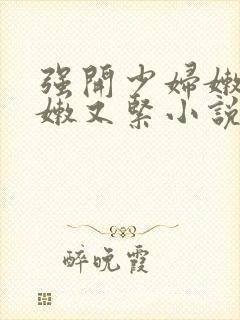 强開少婦嫩
嫩又緊小說
醉晚霞